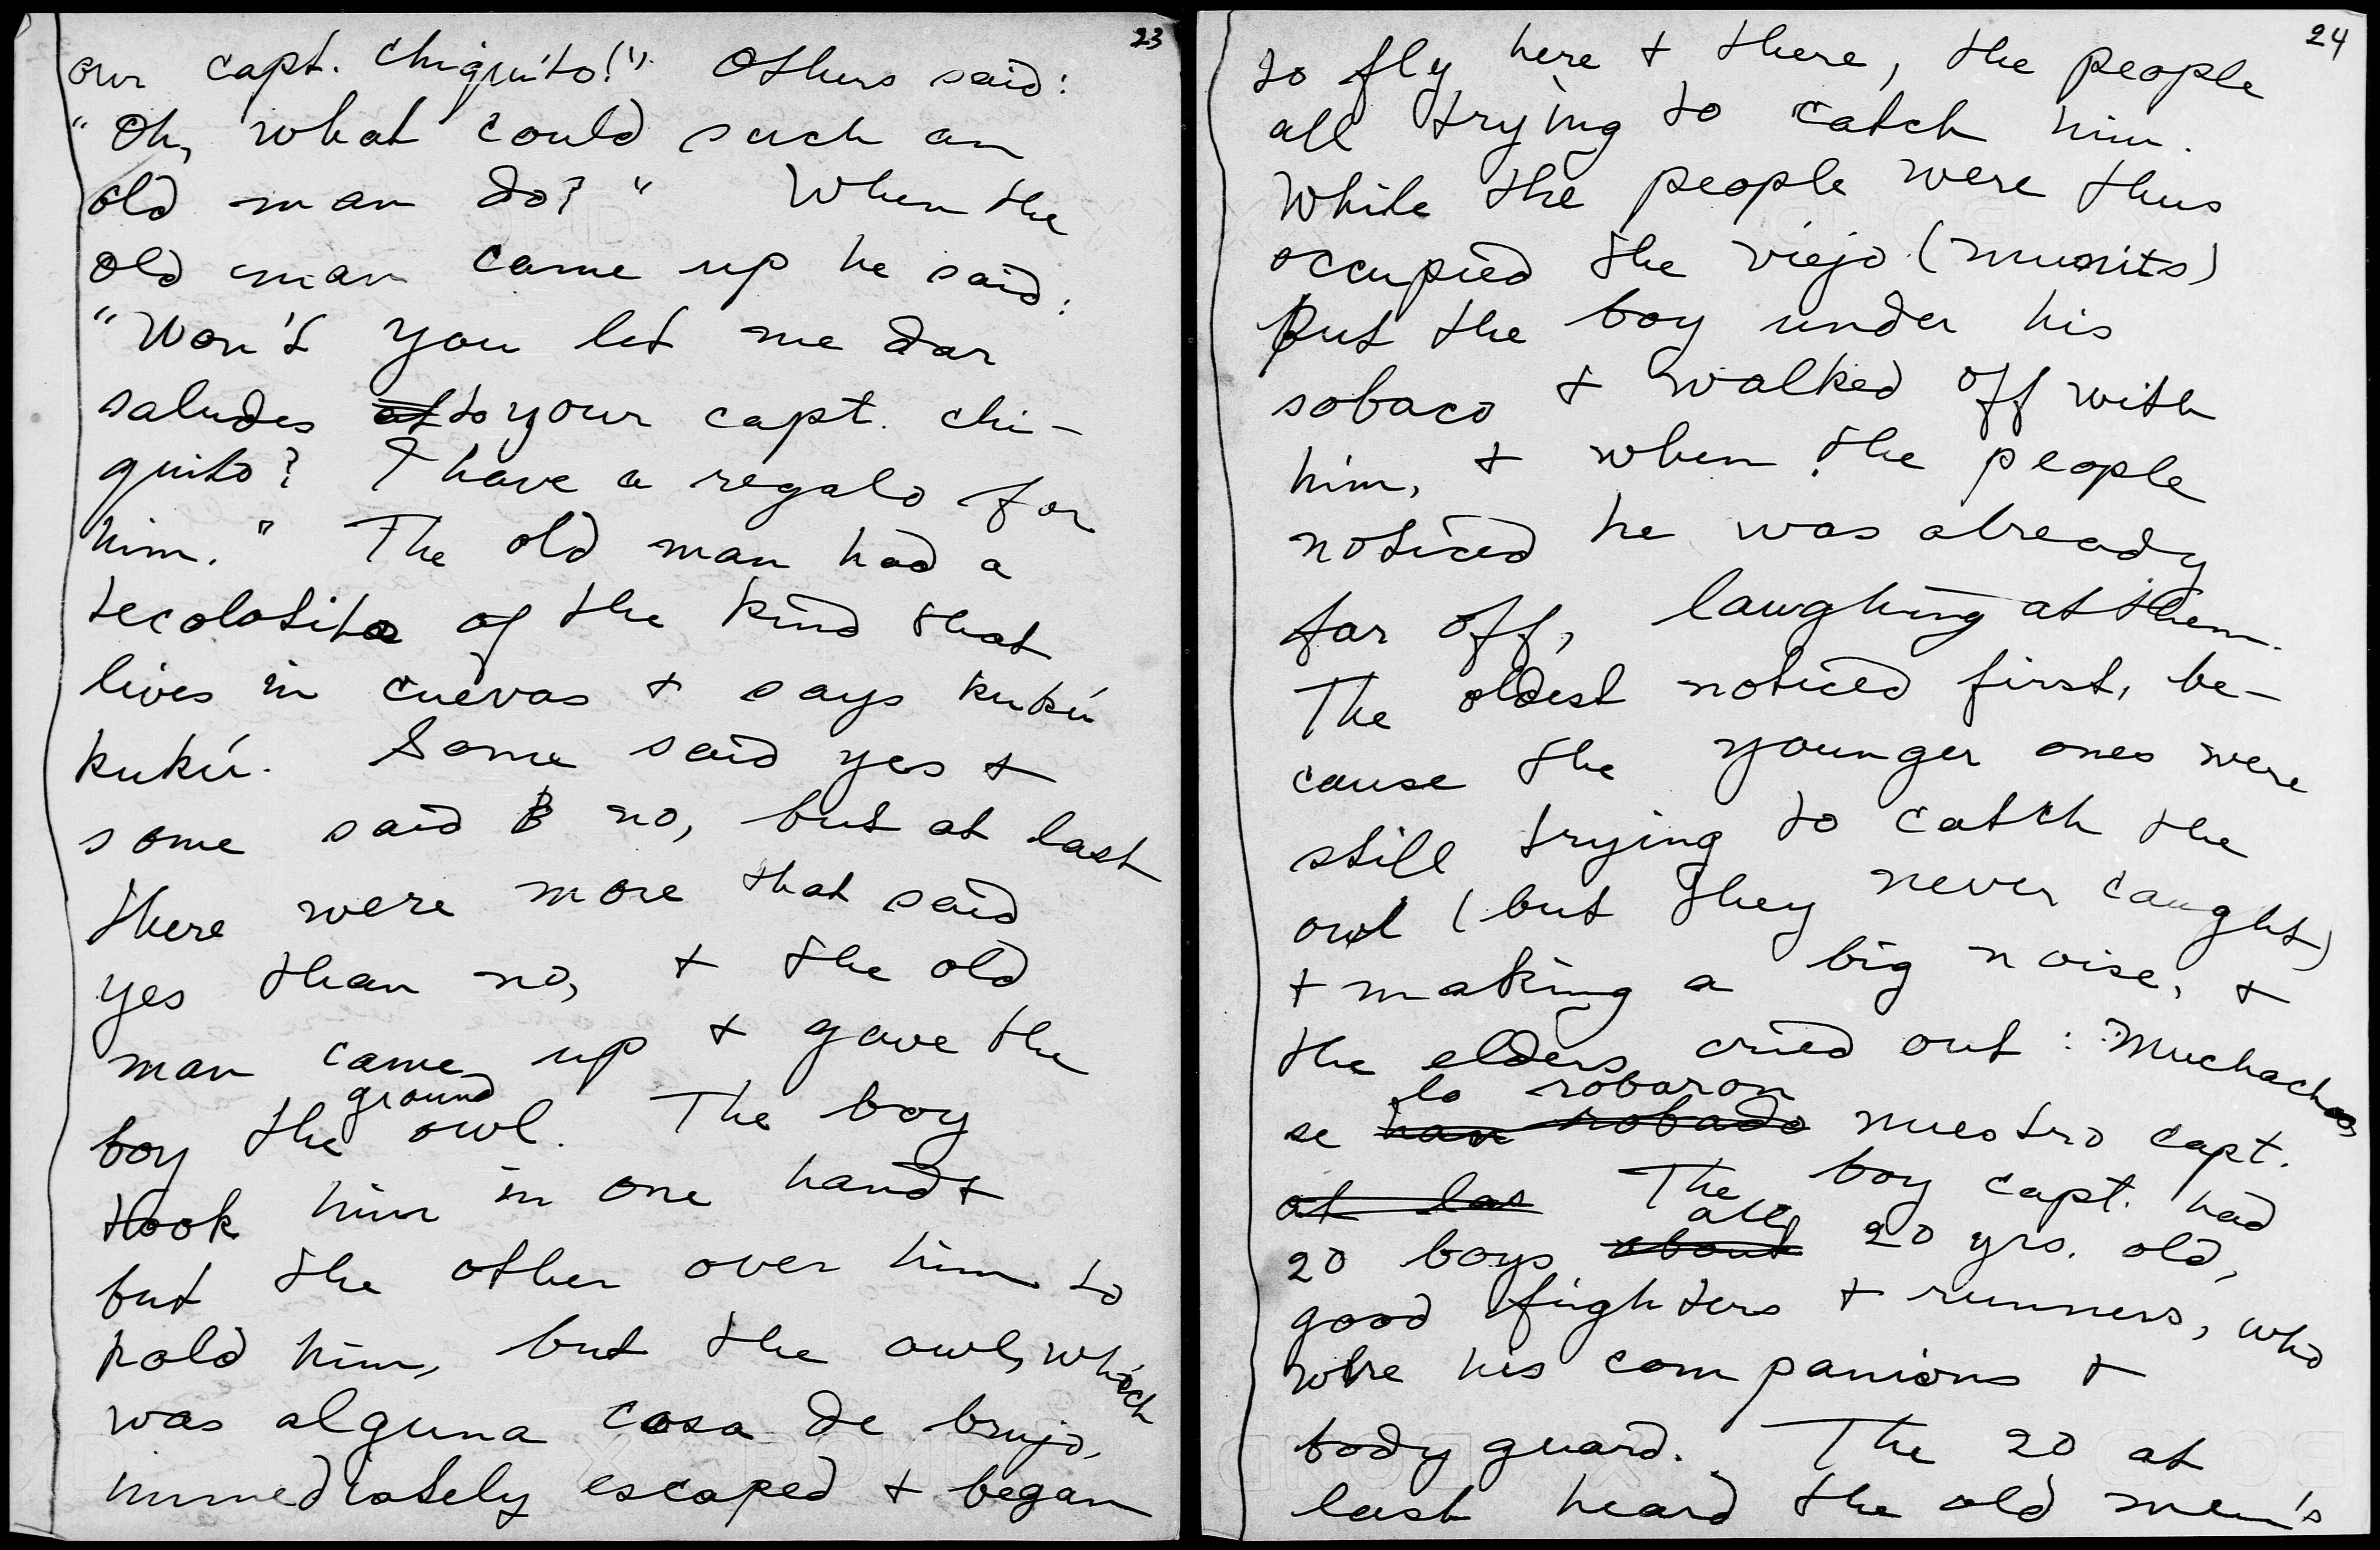 23
our capt. chiquito!" Others said:
"Oh, what could such an
old man do?" When the
old man came up he said:
"Won't you let me dar
saludes at to your capt. chi-
quito? I have a regalo for
him." The old man had a
tecolotito of the kind that
lives in cuevas + says kukú
kukú. Some said yes +
some said B no, but at last
there were more that said
yes than no, + the old
man came up + gave the
ground
boy the owl. The boy
took him in one hand +
put the other over him to
hold him, but the owl, which
was alguna cosa de brujo,
immediately escaped + began
24
to fly here + there, the people
all trying to catch him.
While the people were thus
occupied the viejo (munits)
put the boy under his
sobaco + walked off with
him, + when the people
noticed he was already
far off, laughing at them.
The oldest noticed first, be-
cause the younger ones were
still trying to catch the
owl (but they never caught)
+ making a big noise, +
the elders cried out: Muchachos
lo robaron
se han robado nuestro capt.
at las The boy capt. had
all
20 boys about 20 yrs. old,
good fighters + runners, who
were his companions +
body guard. The 20 at
last heard the old men's